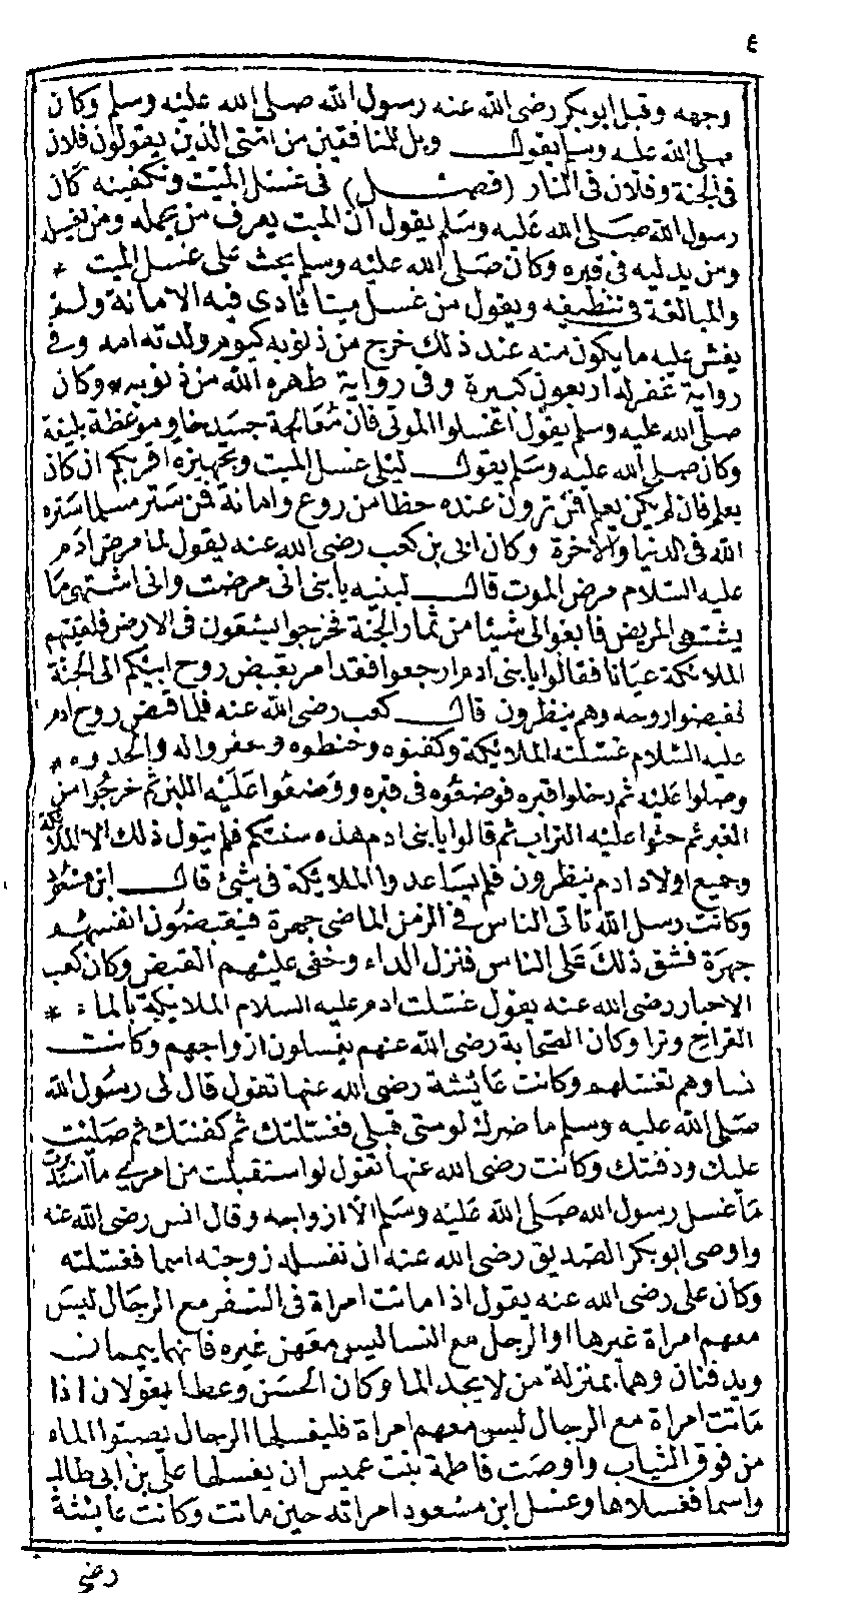 ٤
وجهه وقبل ابو بكر رضى الله عنه رسول الله صلى الله عليه وسلم وكان
صلى الله عليه وسلم يقول ويل للمنافقين من امتى الذين يقولون فلان
فى الجنة وفلان فى النار (فصل) فى غسل الميت وتكفينه كان
رسول الله صلى الله عليه وسلم يقول ان الميت يعرف من يحمله ومن يغسله
ومن يدليه فى قبره وكان صلى الله عليه وسلم يحث على غسل الميت *
والمبالغة فى تنظيفه ويقول من غسل ميتا فادى فيه الامانة ولم
يفش عليه ما يكون منه عند ذلك خرج من ذنوبه كيوم ولدته امه وفى
رواية غفر له اربعون كبيرة وفى رواية طهره الله من ذنوبه * وكان
صلى الله عليه وسلم يقول اغسلوا الموتى فان معالجة جسد خاو موعظة بليغة
وكان صلى الله عليه وسلم يقول ليلى غسل الميت وتجهيزه اقربكم ان كان
يعلم فان لم يكن يعلم فمن ترون عنده حظا من روع وامانة فمن ستر مسلما ستره
الله فى الدنيا والاخرة وكان ابى بن كعب رضى الله عنه يقول لما مرض ادم
عليه السلام مرض الموت قال لبنيه يا بنى انى مرضت وانى اشتهى ما
يشتهى المريض فابغوا لى شيئا من ثمار الجنة فخرجوا يسعون فى الارض فلقيتهم
الملائكة عيانا فقالوا يا بنى ادم ارجعوا فقد امر بقبض روح ابيكم الى الجنة
فقبضوا روحه وهم ينظرون قال كعب رضى الله عنه فلما قبض روح ادم
عليه السلام غسلته الملائكة وكفنوه وحنطوه وحفروا له والحدوه *
وصلوا عليه ثم دخلوا قبره فوضعوه فى قبره ووضعوا عليه اللبن ثم خرجوا من
القبر ثم حثوا عليه التراب ثم قالوا يا بنى ادم هذه سنتكم فلم يتول ذلك الا الملائكة
وجميع اولاد ادم ينظرون فلم يساعدوا الملائكة فى شئ قال ابن مسعود
وكانت رسل الله تاتى الناس فى الزمن الماضى جهرة فيقبضون انفسهم
جهرة فشق ذلك على الناس فنزل الداء وخفى عليهم القبض وكان كعب
الاحبار رضى الله عنه يقول غسلت ادم عليه السلام الملائكة بالماء *
القراح وترا وكان الصحابة رضى الله عنهم يغسلون ازواجهم وكانت
نساوهم تغسلهم وكانت عائشة رضى الله عنها تقول قال لى رسول الله
صلى الله عليه وسلم ما ضرك لو متى قبلى فغسلتك ثم كفنتك ثم صليت
عليك ودفنتك وكانت رضى الله عنها تقول لو استقبلت من امرى ما استدبرت
ما غسل رسول الله صلى الله عليه وسلم الا ازواجه وقال انس رضى الله عنه
واوصى ابو بكر الصديق رضى الله عنه ان تغسله زوجته اسما فغسلته
وكان على رضى الله عنه يقول اذا ماتت امراة فى السفر مع الرجال ليس
معهم امراة غيرها او الرجل مع النسا ليس معهن غيره فانهما ييممان
ويدفنان وهما بمنزلة من لا يجد الما وكان الحسن وعطا يقولان اذا
ماتت امراة مع الرجال ليس معهم امراة فليغسلها الرجال يصبوا الماء
من فوق الثياب واوصت فاطمة بنت عميس ان يغسلها على بن ابى طالب
واسما فغسلاها وغسل ابن مسعود امراته حين ماتت وكانت عائشة
رضى